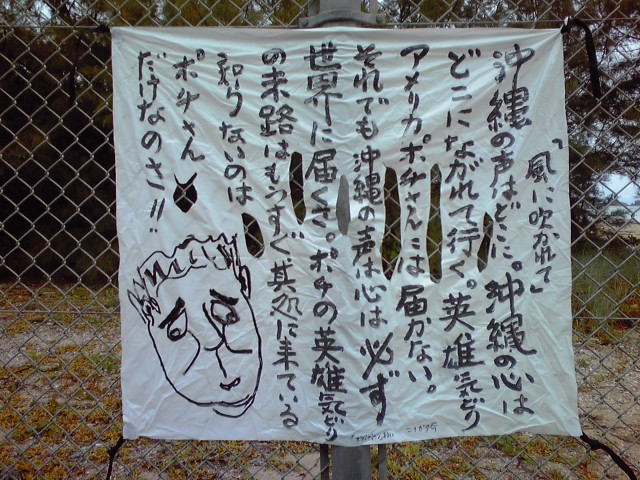 「風に吹かれて」
沖縄の声はどこに。沖縄の心は
どこにながれて行く。英雄気どり
アメリカポチさんには届かない。
それでも沖縄の声は心は必ず
世界に届くさ。ポチの英雄気どり
の末路はもうすぐ其処に来ている
知らないのは
ポチさん
だけなのさ!!